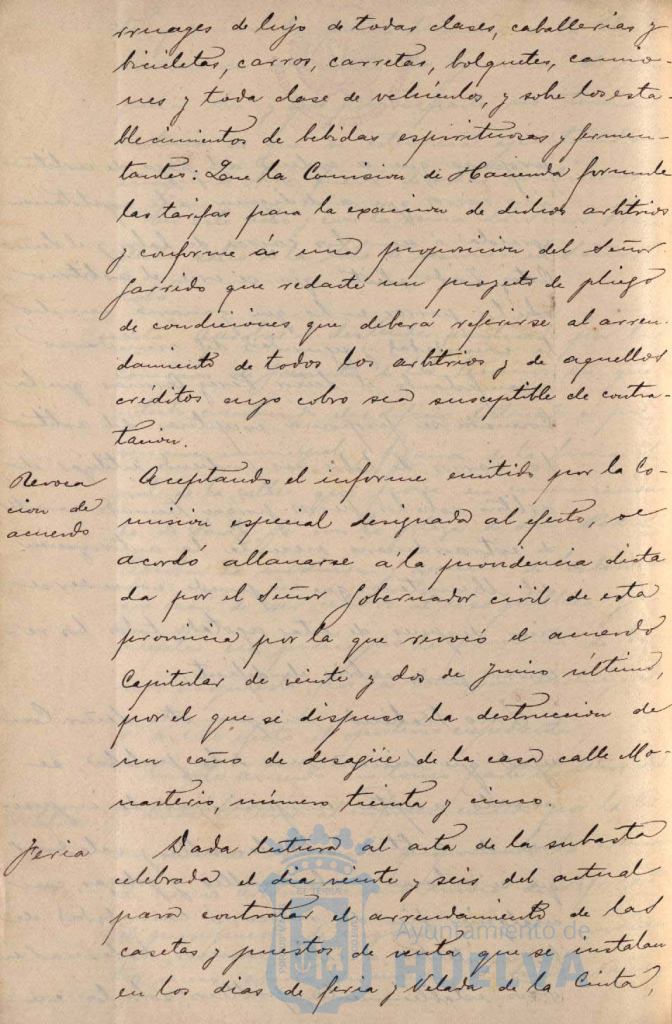 rruages de lujo de todas clases, caballerias y
bicicletas, carros, carretas, bolquetes, camio-
nes y toda clase de vehículos, y sobre los esta-
blecimientos de bebidas espirituosas y fermen-
tantes: Que la Comision de Hacienda formule
las tarifas para la exaccion de dichos arbitrios
y conforme á una proposicion del Señor
Garrido que redacte un proyecto de pliego
de condiciones que deberá referirse al arren-
damiento de todos los arbitrios y de aquellos
créditos cuyo cobro sea susceptible de contra-
tacion.
Revoca
cion de
acuerdo
Aceptando el informe emitido por la Co-
mision especial designada al efecto, se
acordó allanarse á la providencia dicta
da por el Señor Gobernador civil de esta
provincia por la que revocó el acuerdo
Capitular de veinte y dos de Junio último,
por el que se dispuso la destruccion de
un caño de desagüe de la casa calle Mo-
nasterio, número treinta y cinco.
Feria
Dada lectura al acta de la subasta
celebrada el dia veinte y seis del actual
para contratar el arrendamiento de las
casetas y puestos de venta que se instalan
en los dias de feria y Velada de la Cinta,
Ayuntamiento de
HUELVA